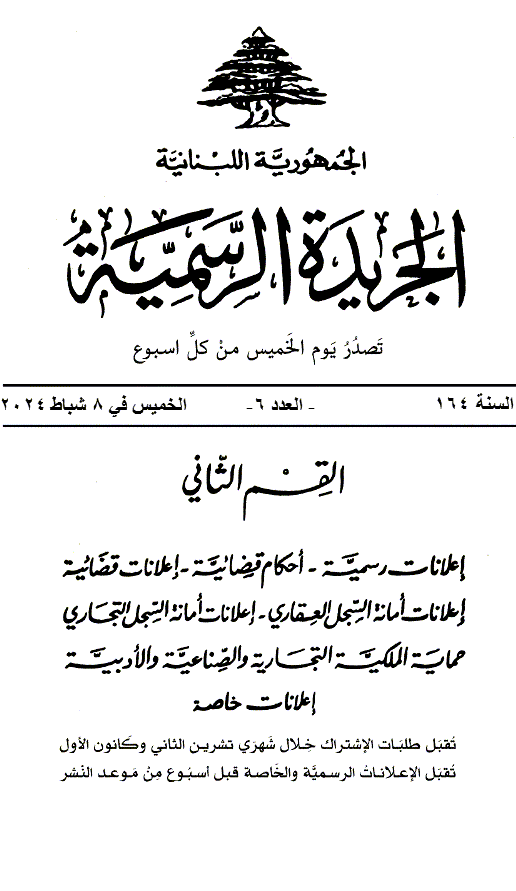 الجمهورية اللبنانية
الجريدة الرسمية
تصدر يوم الخميس من كل اسبوع
السنة ١٦٤ - العدد ٦- الخميس في ٨ شباط ٢٠٢٤
القسم الثاني
إعلانات رسمية - أحكام قضائية - إعلانات قضائية
إعلانات أمانة السجل العقاري - إعلانات أمانة السجل التجاري
حماية الملكية التجارية والصناعية والأدبية
إعلانات خاصة
تُقبَل طلبَات الإشتراك خِلال شَهرَي تشرين الثاني وكَانون الأول
تُقبَل الإعلاناتُ الرسميَّة والخَاصة قبل أسبُوع مِنْ مَوعد النَشر